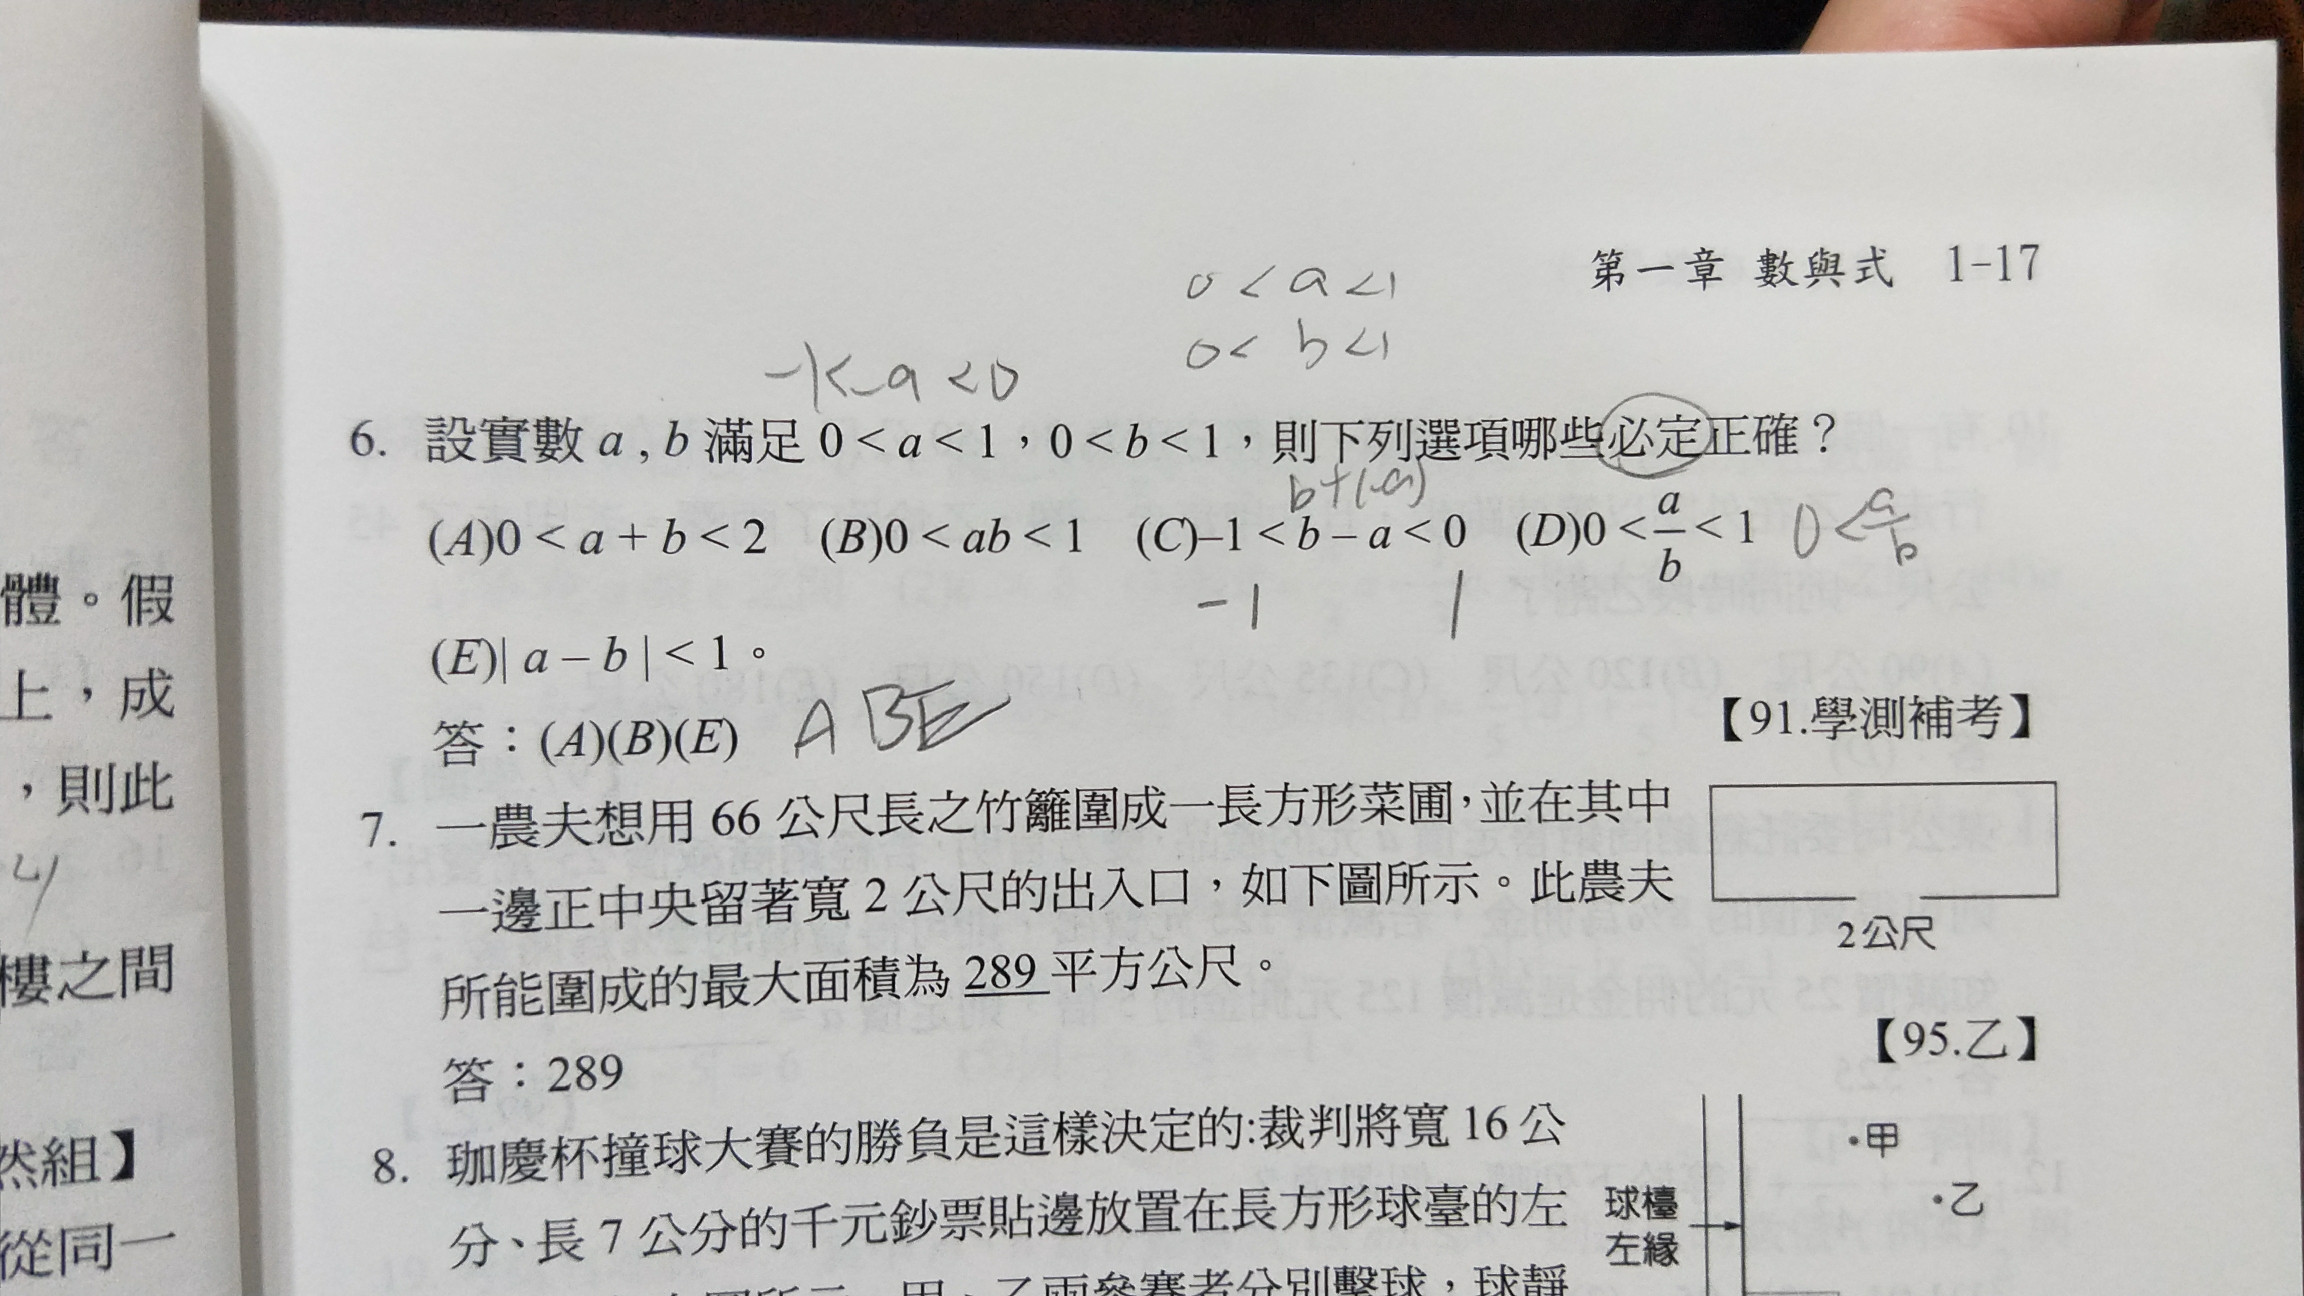 第一章 數與式 1-17
0 < a < 1
0 < b < 1
-1 < -a < 0
6. 設實數 a , b 滿足 0 < a < 1，0 < b < 1，則下列選項哪些必定正確？
b+(-a)
(A)0 < a + b < 2 (B)0 < ab < 1 (C)–1 < b – a < 0 (D)0 < a/b < 1 0 < a/b
-1 1
(E)| a – b | < 1。
答：(A)(B)(E) ABE
【91.學測補考】
7. 一農夫想用 66 公尺長之竹籬圍成一長方形菜圃，並在其中
一邊正中央留著寬 2 公尺的出入口，如下圖所示。此農夫
2公尺
所能圍成的最大面積為 289 平方公尺。
【95.乙】
答：289
8. 珈慶杯撞球大賽的勝負是這樣決定的:裁判將寬 16 公
分、長 7 公分的千元鈔票貼邊放置在長方形球臺的左
甲、乙兩參賽者分別擊球，球靜
·甲
·乙
球檯
左緣
體。假
上，成
，則此
樓之間
然組】
從同一